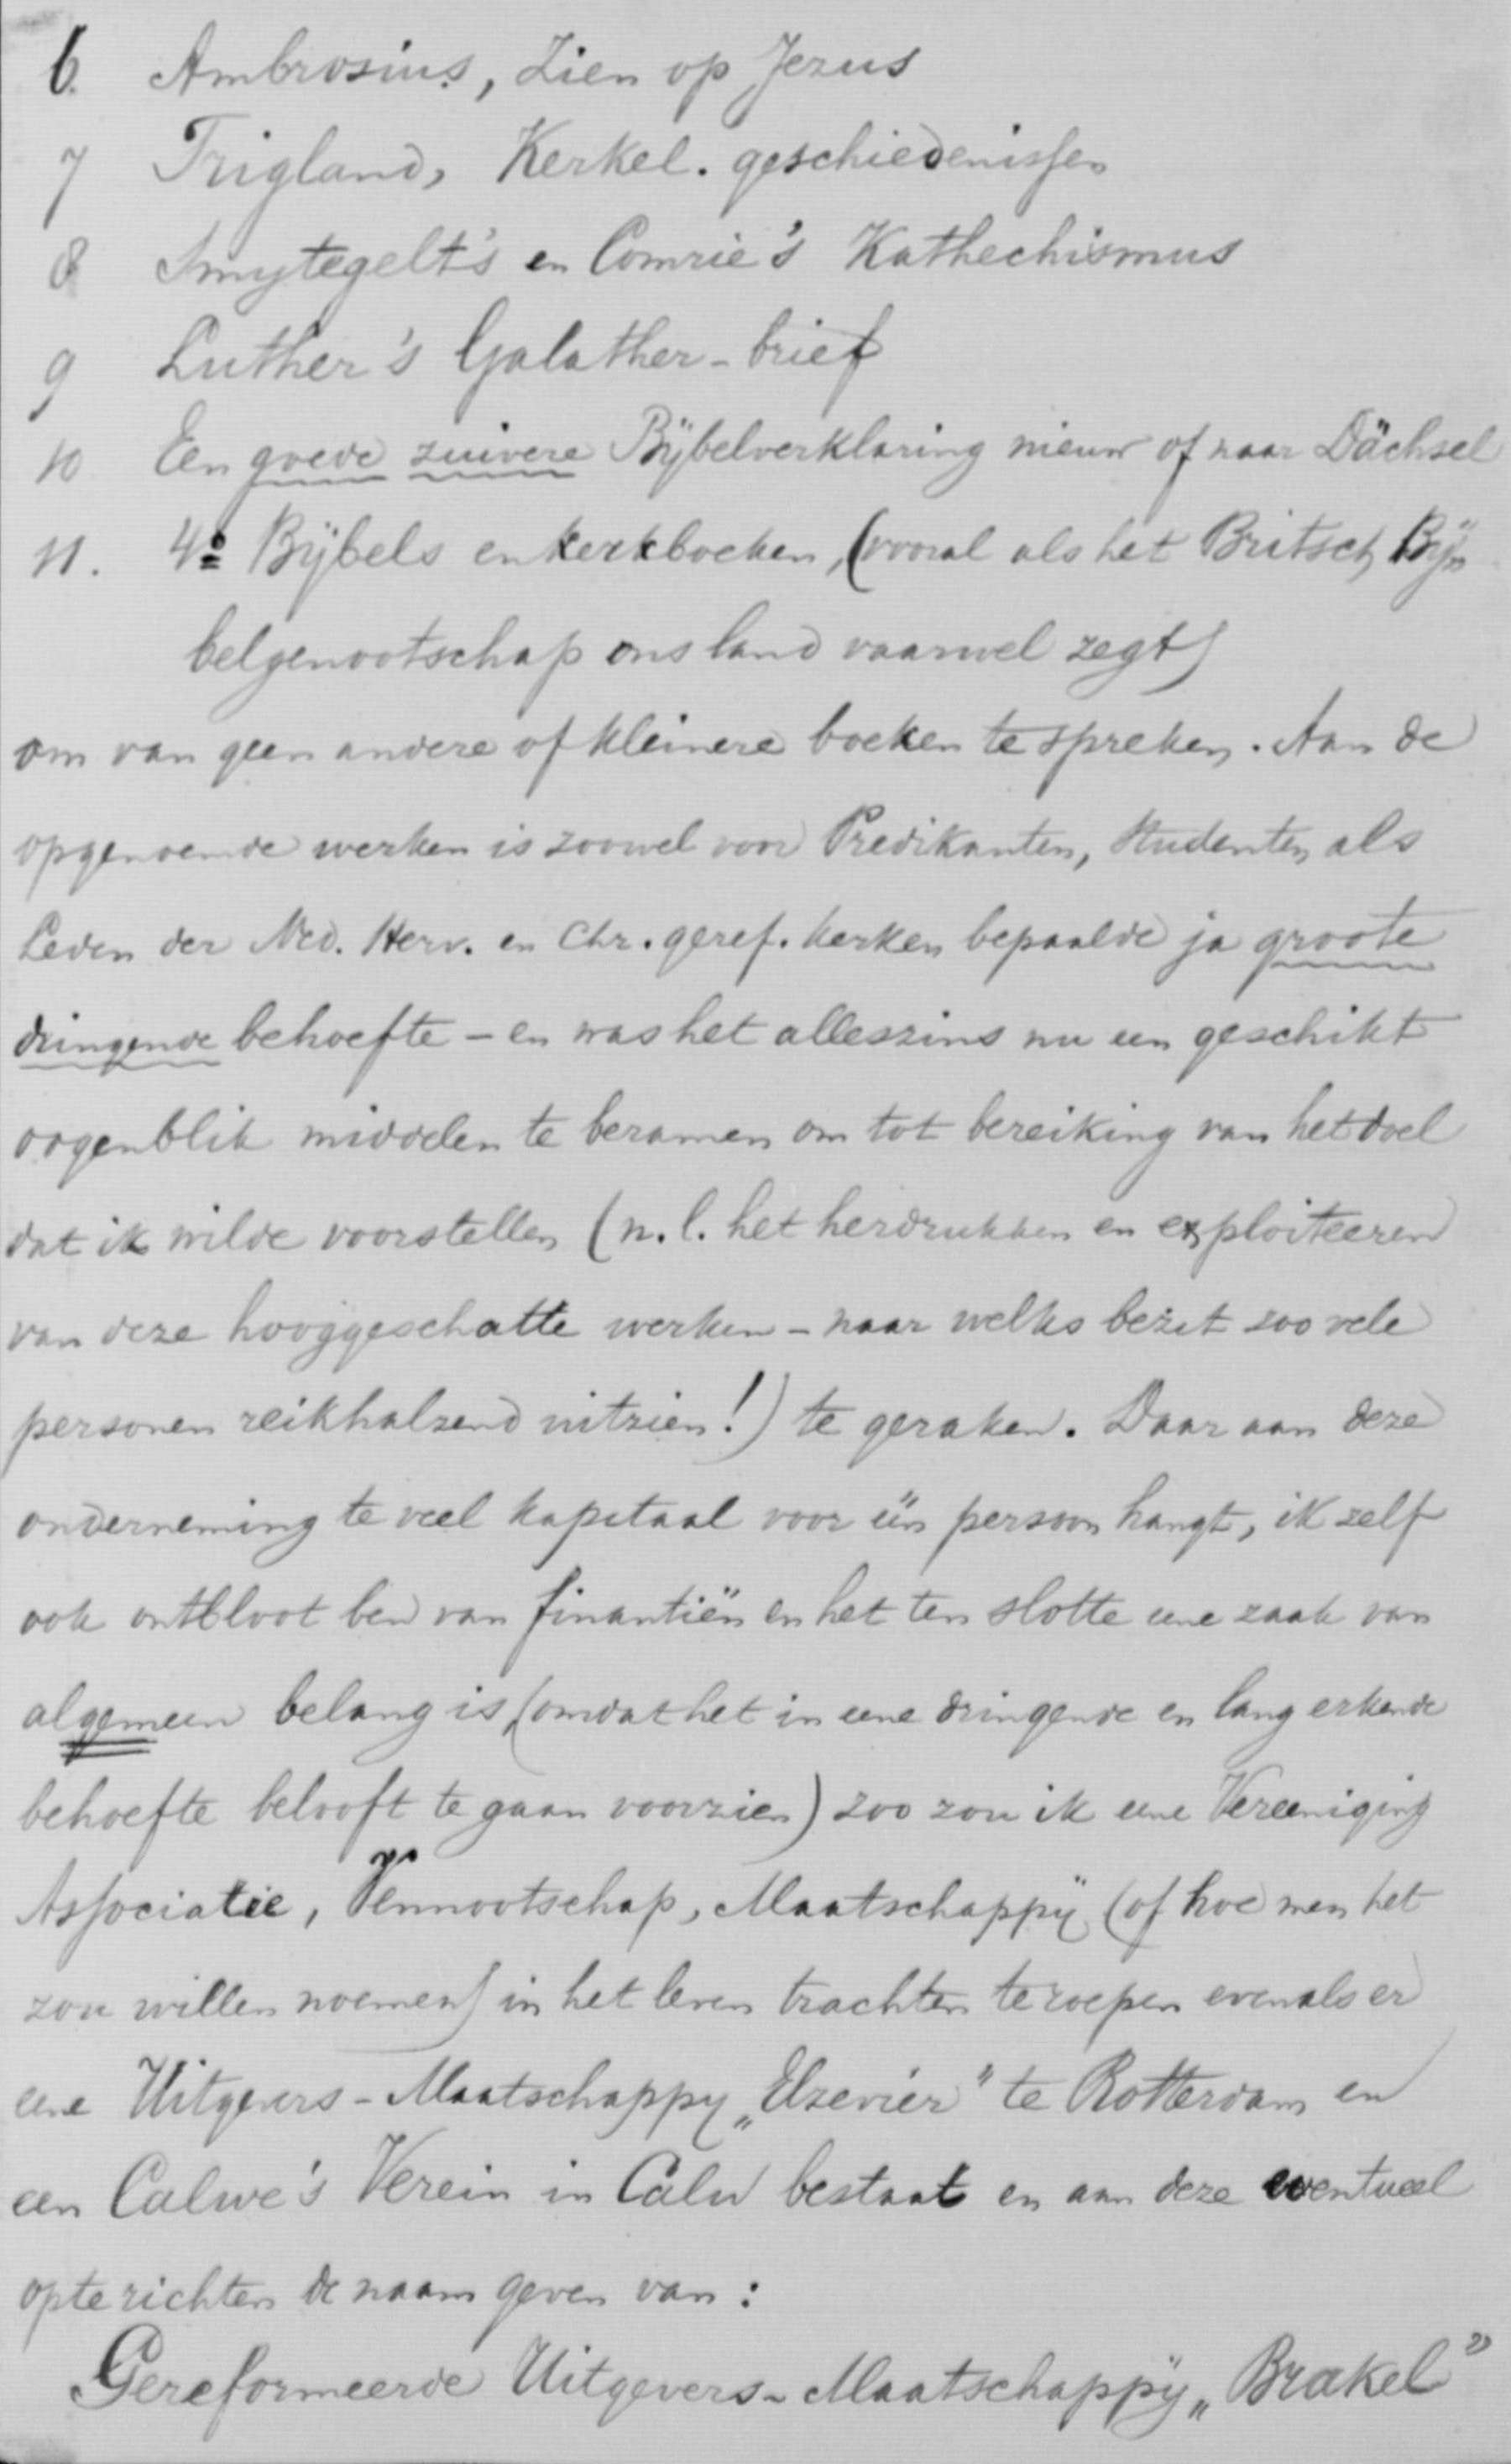 6. Ambrosius, Zien op Jezus
7 Trigland, Kerkel. geschiedenissen
8 Smytegelt's en Comrie's Kathechismus
9 Luther's Galather-brief
10 Een goede zuivere Bijbelverklaring nieuw of naar Dächsel
11. 4º Bijbels en kerkboeken, (vooral als het Britsch Bij-
belgenootschap ons land vaarwel zegt)
om van geen andere of kleinere boeken te spreken. Aan de
opgenoemde werken is zoowel voor Predikanten, Studenten als
Leden der Ned. Herv. en Chr. geref. kerken bepaalde ja groote
dringende behoefte - en was het alleszins nu een geschikt
oogenblik middelen te beramen om tot bereiking van het doel
dat ik wilde voorstellen (n.l. het herdrukken en exploiteeren
van deze hooggeschatte werken - naar welks bezit zoo vele
personen reikhalzend uitzien!) te geraken. Daar aan deze
onderneming te veel kapitaal voor één persoon hangt, ik zelf
ook ontbloot ben van finantiën en het ten slotte eene zaak van
algemeen belang is, (omdat het in eene dringende en lang erkende
behoefte belooft te gaan voorzien) zoo zou ik eene Vereeniging
Associatie, Vennootschap, Maatschappij (of hoe men het
zou willen noemen) in het leven trachten te roepen evenals er
eene Uitgevers-Maatschappy „Elsevier" te Rotterdam en
een Calwe's Verein in Calw bestaat en aan deze eventueel
opterichten de naam geven van:
Gereformeerde Uitgevers-Maatschappij „Brakel"